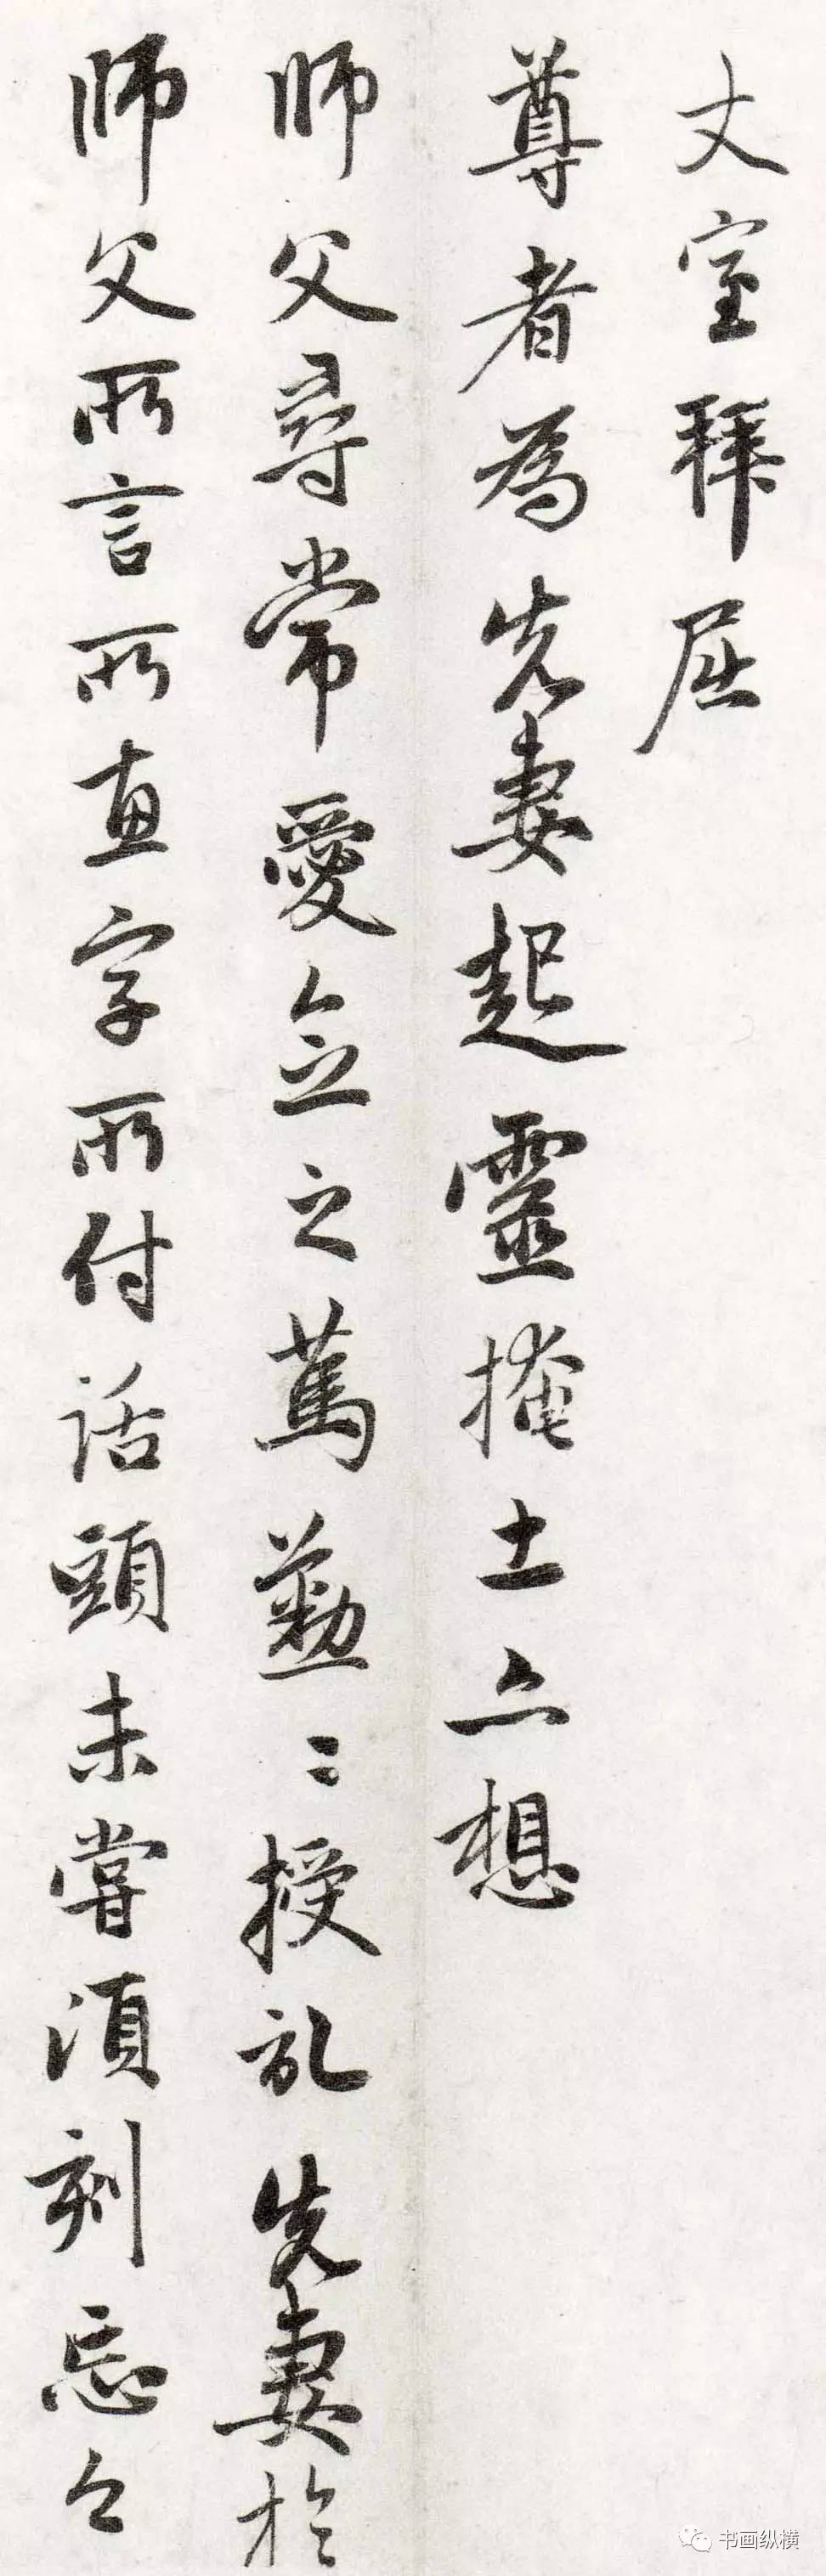 丈室拜屈
尊者為先妻起靈掩土亦想
師父尋常愛念之篤恭〻授記先妻於
師父所言所惠字所付話頭未嘗須刻忘令
书画纵横